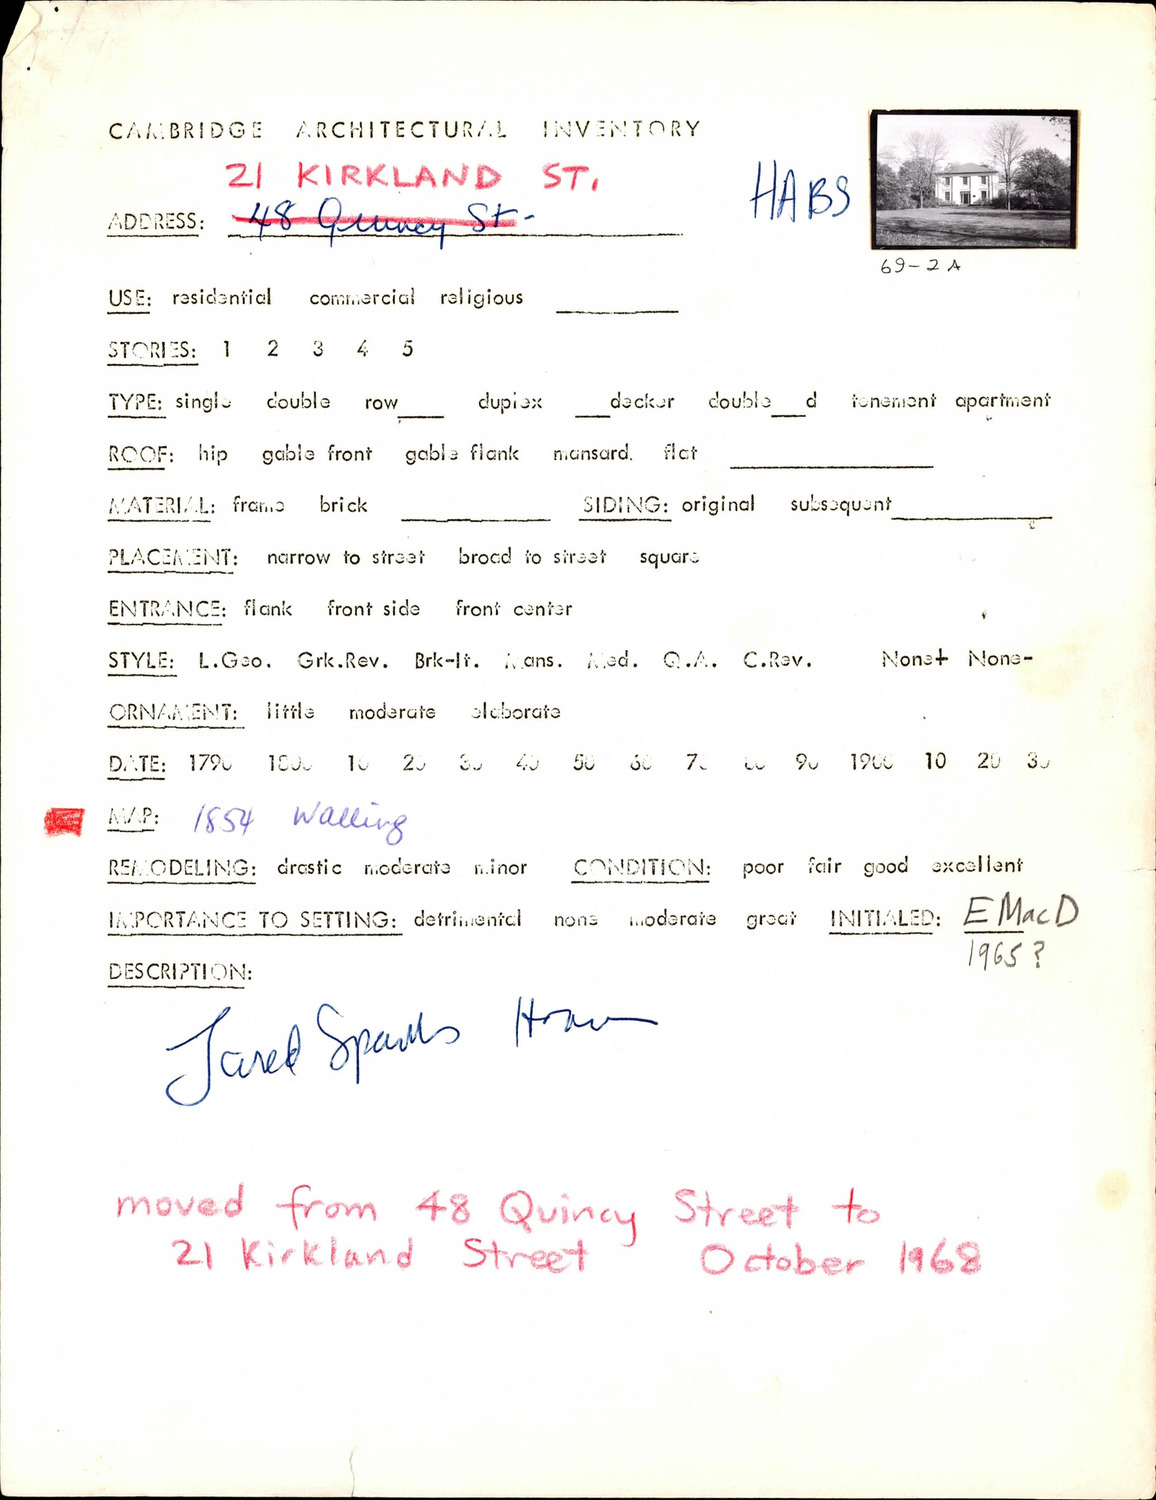 CAMBRIDGE ARCHITECTURAL INVENTORY
21 KIRKLAND ST.
HABS
ADDRESS: 48 Quincy St-
69-2A
USE: residential commercial religious
STORIES: 1 2 3 4 5
TYPE: single double row____ duplex ___decker double___d tenement apartment
ROOF: hip gable front gable flank mansard. flat
MATERIAL: frame brick SIDING: original subsequent
PLACEMENT: narrow to street broad to street square
ENTRANCE: flank front side front center
STYLE: L.Geo. Grk.Rev. Brk-It. Mans. Med. Q.A. C.Rev. None+ None-
ORNAMENT: little moderate elaborate
DATE: 1790 1800 10 20 30 40 50 60 70 80 90 1900 10 20 30
MAP: 1854 Walling
REMODELING: drastic moderate minor CONDITION: poor fair good excellent
IMPORTANCE TO SETTING: detrimental none moderate great INITIALED: E MacD
1965?
DESCRIPTION:
Jared Sparks House
moved from 48 Quincy Street to
21 Kirkland Street October 1968